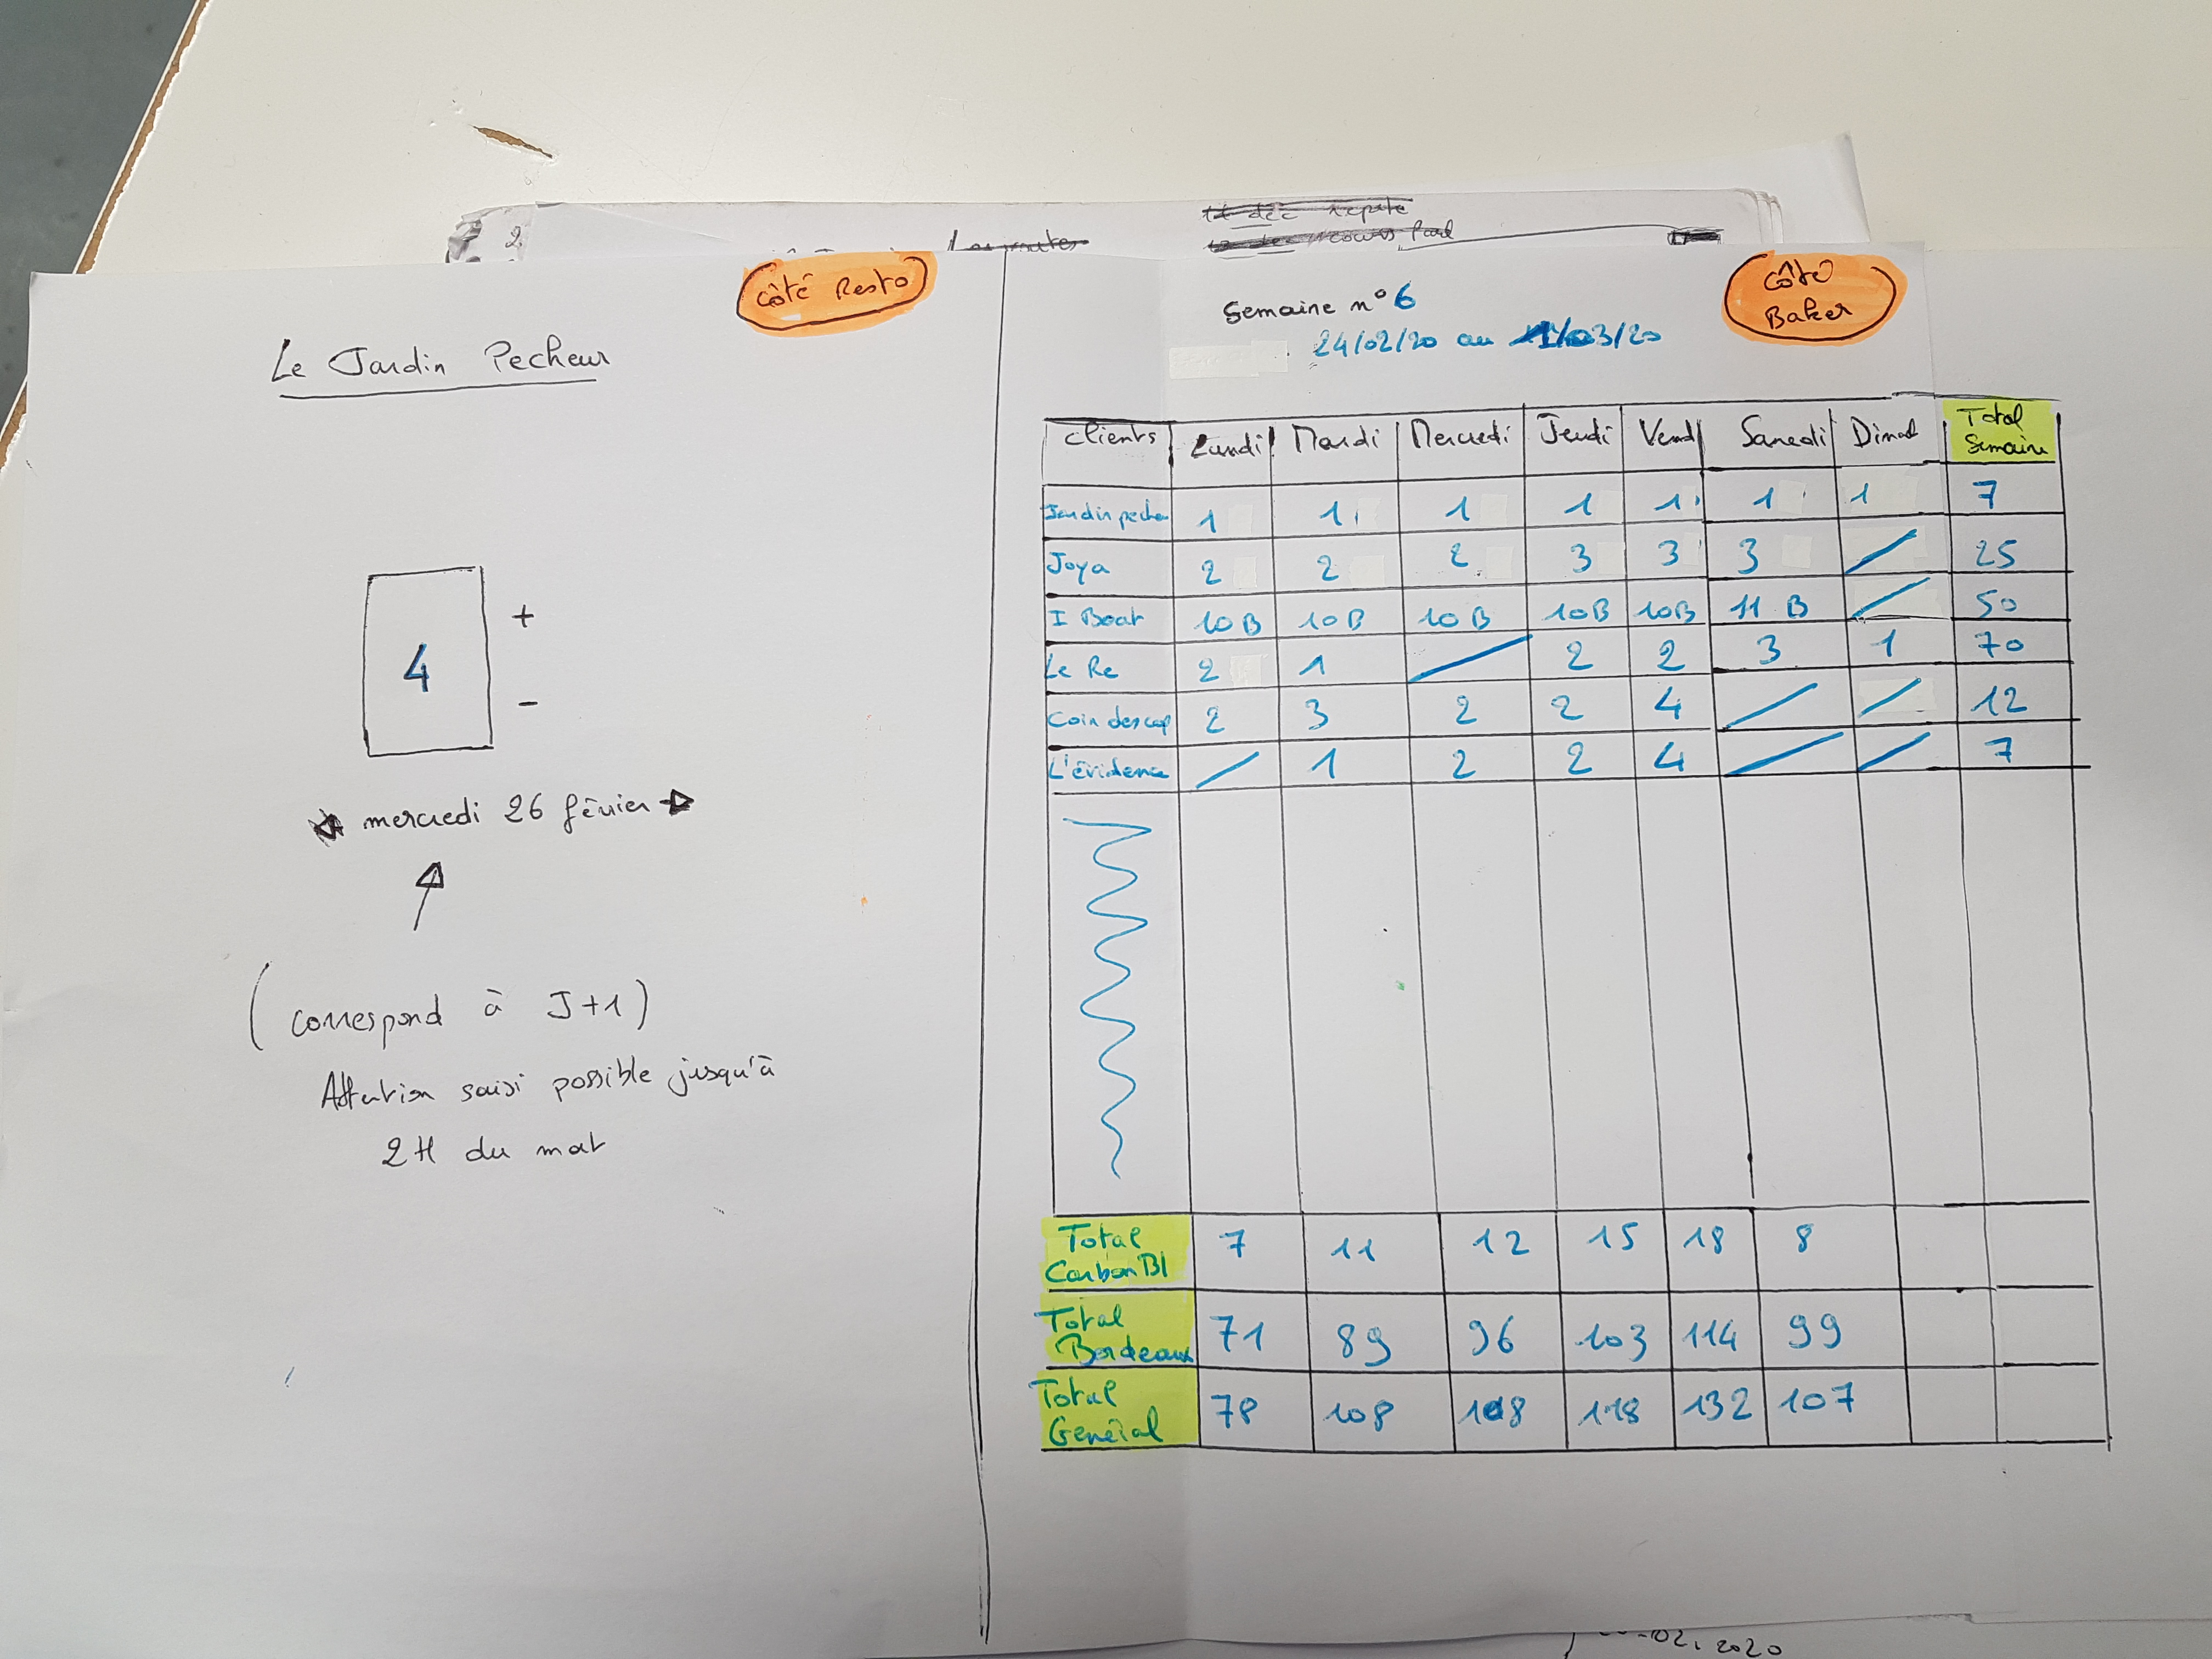 Côté Resto
Le Jardin Pecheur
4
+
-
mercredi 26 février
(correspond à J+1)
Attention saisi possible jusqu'à
2H du mat
Côté
Baker
Semaine n° 6
24/02/20 au 1/03/20
Clients Lundi Mardi Mercredi Jeudi Vend Samedi Dimad Total Semaine
Jardin peche 1 1 1 1 1 1 1 7
Joya 2 2 2 3 3 3 25
I Boat 10B 10B 10B 10B 10B 11B 50
Le Re 2 1 2 2 3 1 70
Coin des cop 2 3 2 2 4 12
L'évidence 1 2 2 4 7
Total CarbonBl 7 11 12 15 18 8
Total Bordeaux 71 89 96 103 114 99
Total Général 78 108 108 118 132 107
02, 2020